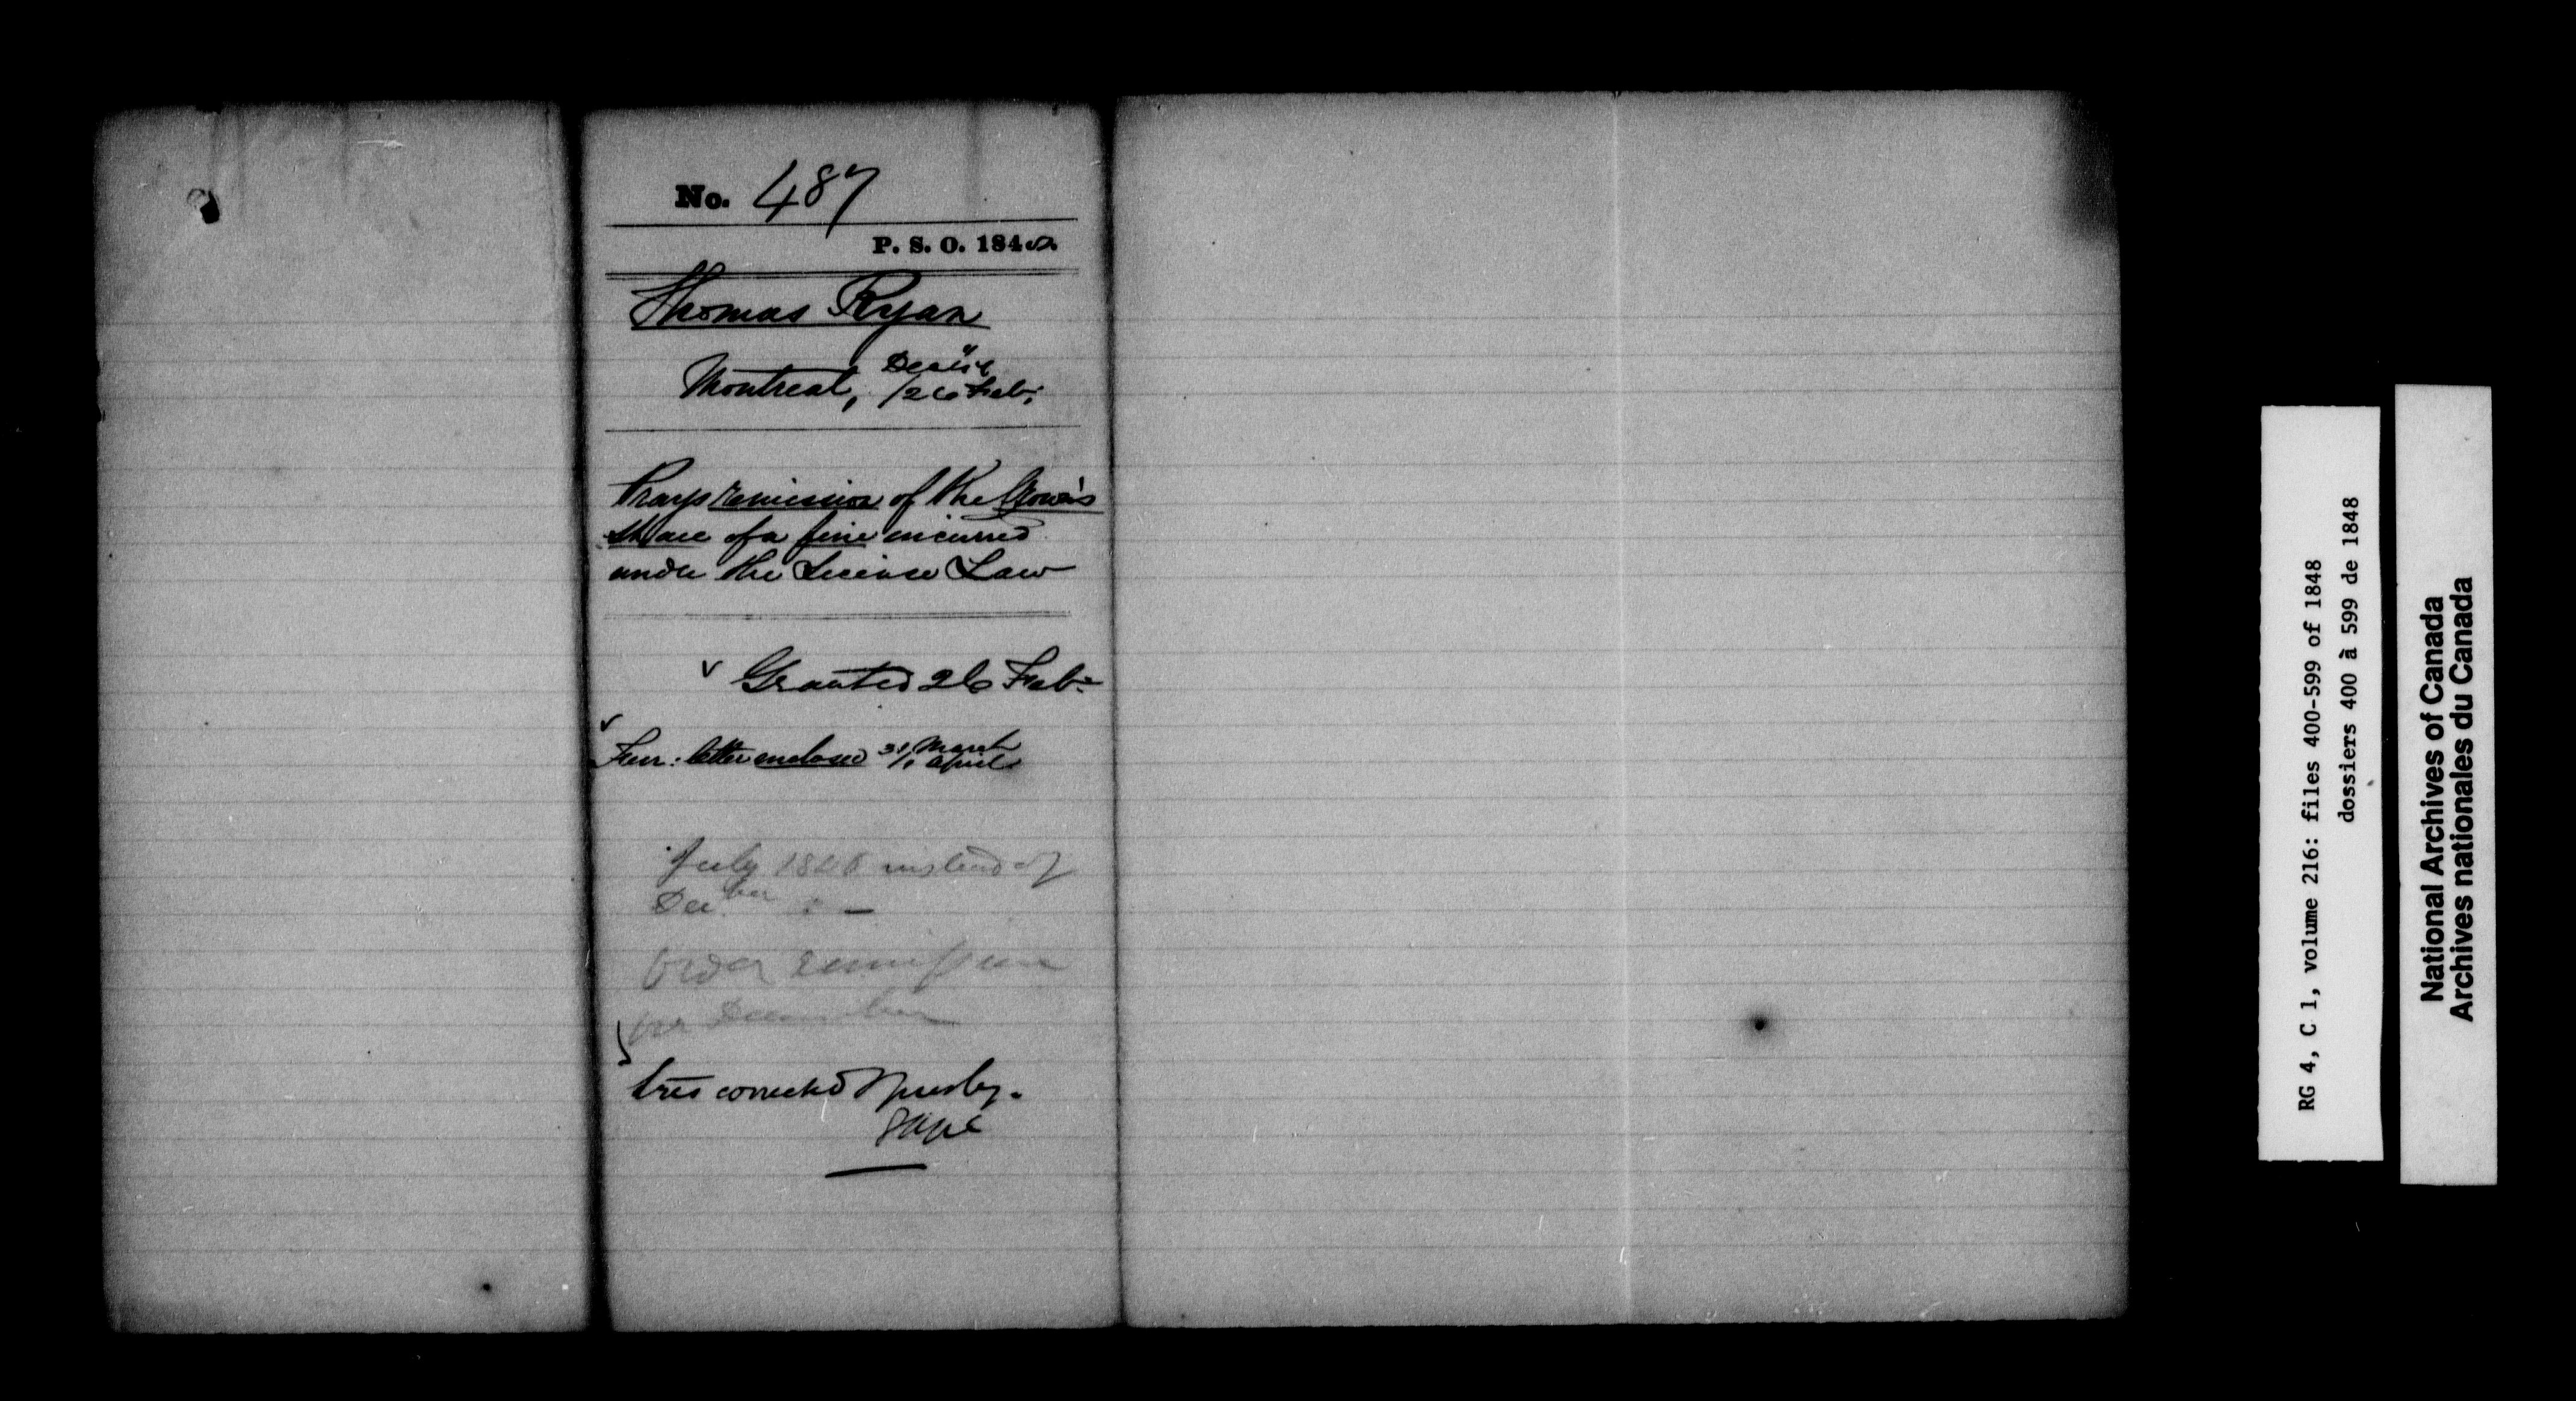 No. 487
P. S. O. 1848
Thomas Ryan
Montreal, /26 Feb:
Prays remission of the Crown's
share of a fine incurred
under the License Law
Granted 26 Feb:
Fur: letter enclosed 31 March
/1 April
July 1846 instead of
Decber
Order remission
for December
corrected
RG 4, C 1, volume 216: files 400-599 of 1848
dossiers 400 à 599 de 1848
National Archives of Canada
Archives nationales du Canada